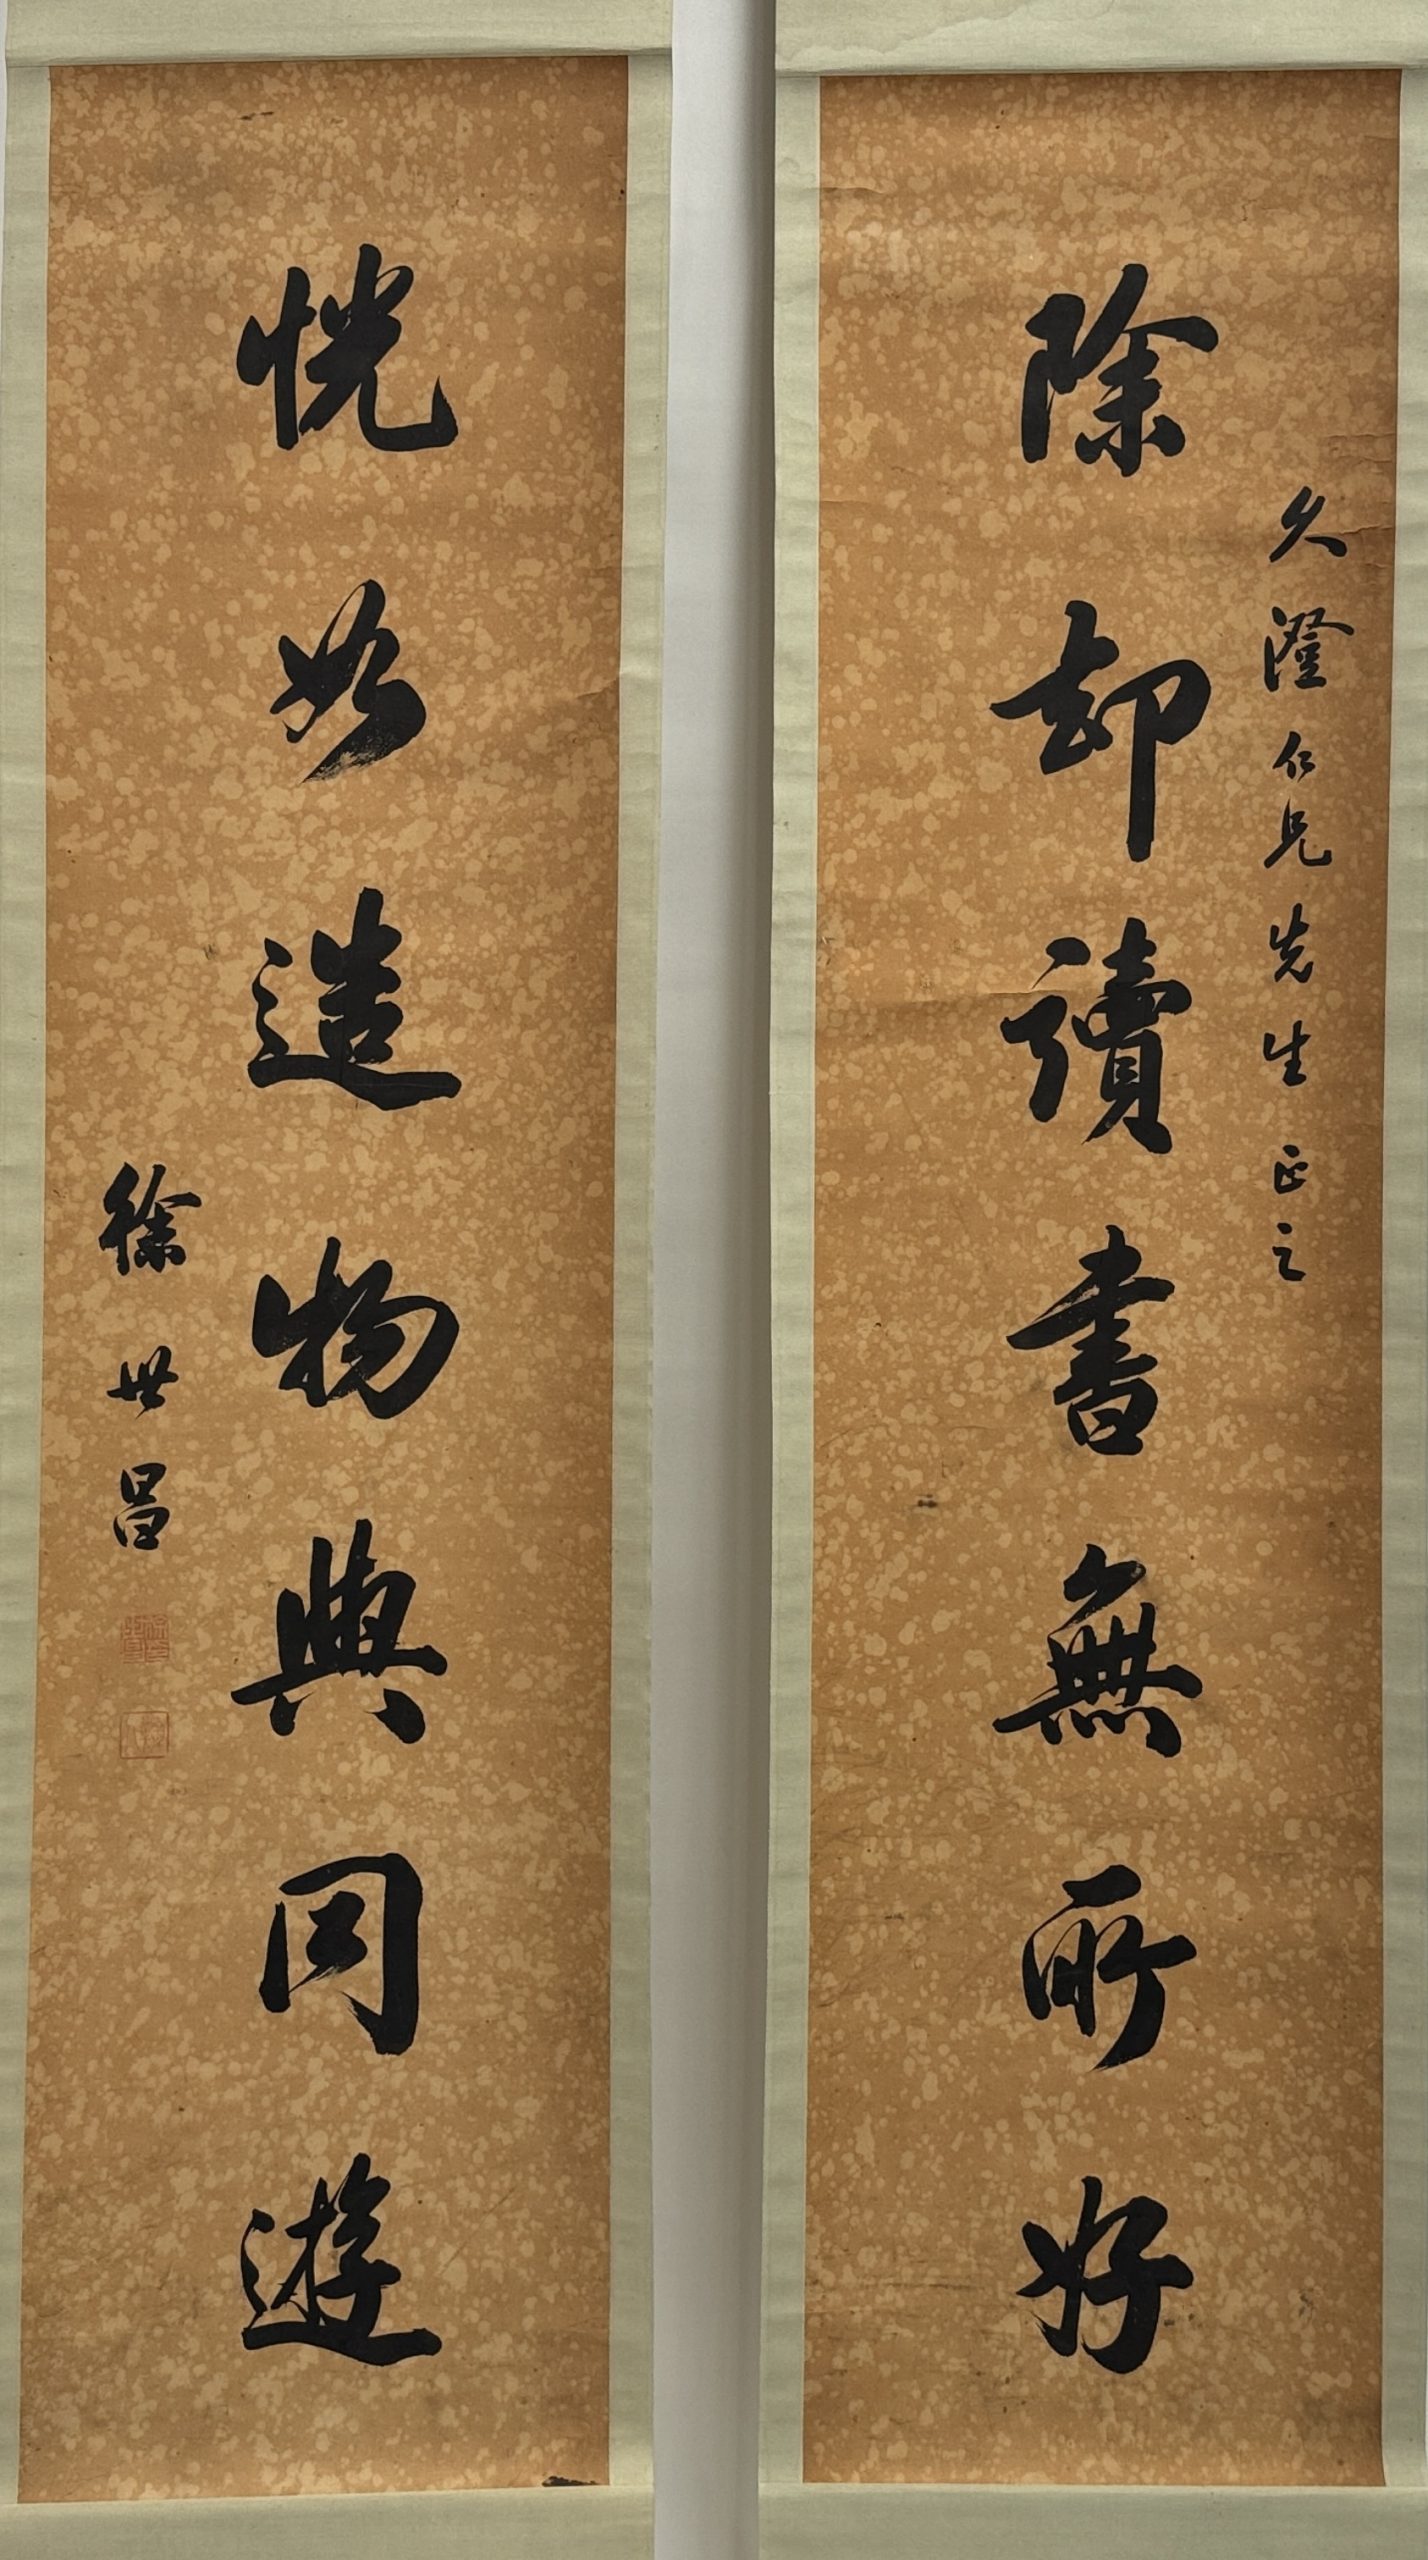 久澄仁兄先生正之
除却讀書無所好
恍如造物與同遊
徐世昌